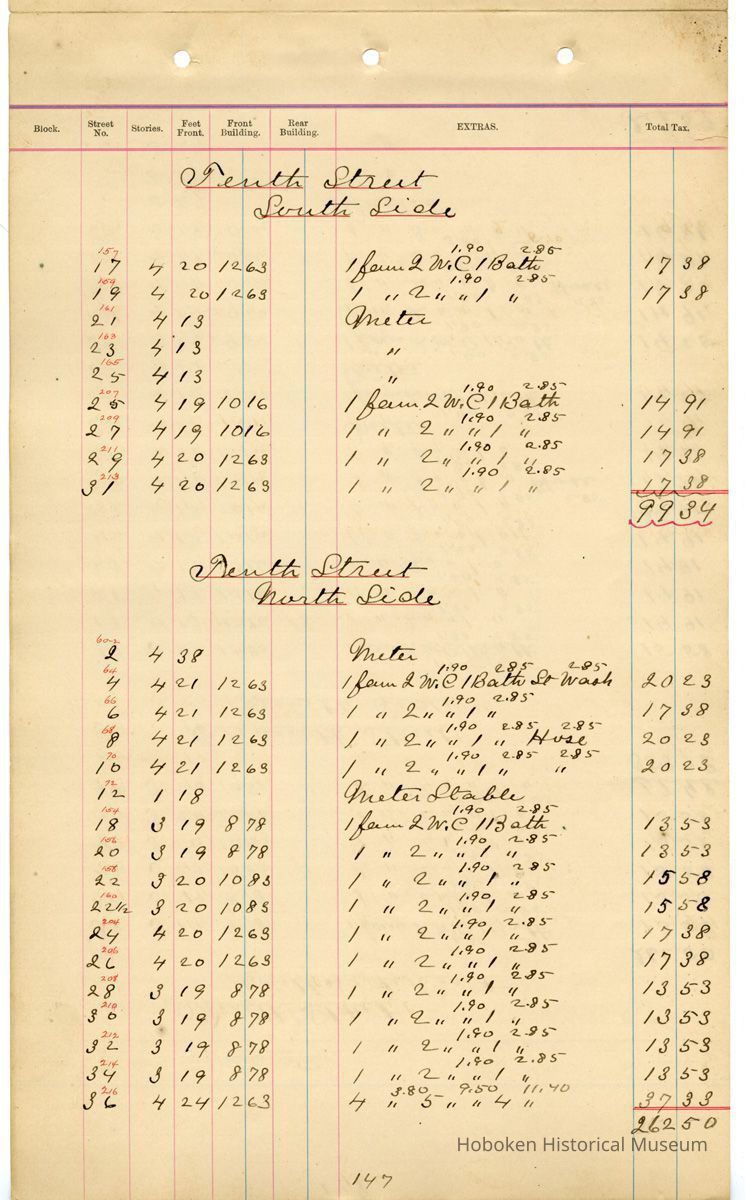 Block. Street No. Stories. Feet Front. Front Building. Rear Building. EXTRAS. Total Tax.
Tenth Street
South Side
157 1.90 2.85
17 4 20 12 63 1 fam 2 W.C 1 Bath 17 38
159 1.90 2.85
19 4 20 12 63 1 " 2 " " 1 " 17 38
161
21 4 13 Meter
163
23 4 13 "
165
25 4 13 "
207 1.90 2.85
25 4 19 10 16 1 fam 2 W.C 1 Bath 14 91
209 1.90 2.85
27 4 19 10 16 1 " 2 " " 1 " 14 91
211 1.90 2.85
29 4 20 12 63 1 " 2 " " 1 " 17 38
213 1.90 2.85
31 4 20 12 63 1 " 2 " " 1 " 17 38
99 34
Tenth Street
North Side
60-2
2 4 38 Meter
64 1.90 2.85 2.85
4 4 21 12 63 1 fam 2 W.C 1 Bath St Wash 20 23
66 1.90 2.85
6 4 21 12 63 1 " 2 " " 1 " 17 38
68 1.90 2.85 2.85
8 4 21 12 63 1 " 2 " " 1 " Hose 20 23
70 1.90 2.85 2.85
10 4 21 12 63 1 " 2 " " 1 " " 20 23
72
12 1 18 Meter Stable
154 1.90 2.85
18 3 19 8 78 1 fam 2 W.C 1 Bath 13 53
156 1.90 2.85
20 3 19 8 78 1 " 2 " " 1 " 13 53
158 1.90 2.85
22 3 20 10 83 1 " 2 " " 1 " 15 58
160 1.90 2.85
22 1/2 3 20 10 83 1 " 2 " " 1 " 15 58
204 1.90 2.85
24 4 20 12 63 1 " 2 " " 1 " 17 38
206 1.90 2.85
26 4 20 12 63 1 " 2 " " 1 " 17 38
208 1.90 2.85
28 3 19 8 78 1 " 2 " " 1 " 13 53
210 1.90 2.85
30 3 19 8 78 1 " 2 " " 1 " 13 53
212 1.90 2.85
32 3 19 8 78 1 " 2 " " 1 " 13 53
214 1.90 2.85
34 3 19 8 78 1 " 2 " " 1 " 13 53
216 3.80 9.50 11.40
36 4 24 12 63 4 " 5 " " 4 " 37 33
262 50
Hoboken Historical Museum
147